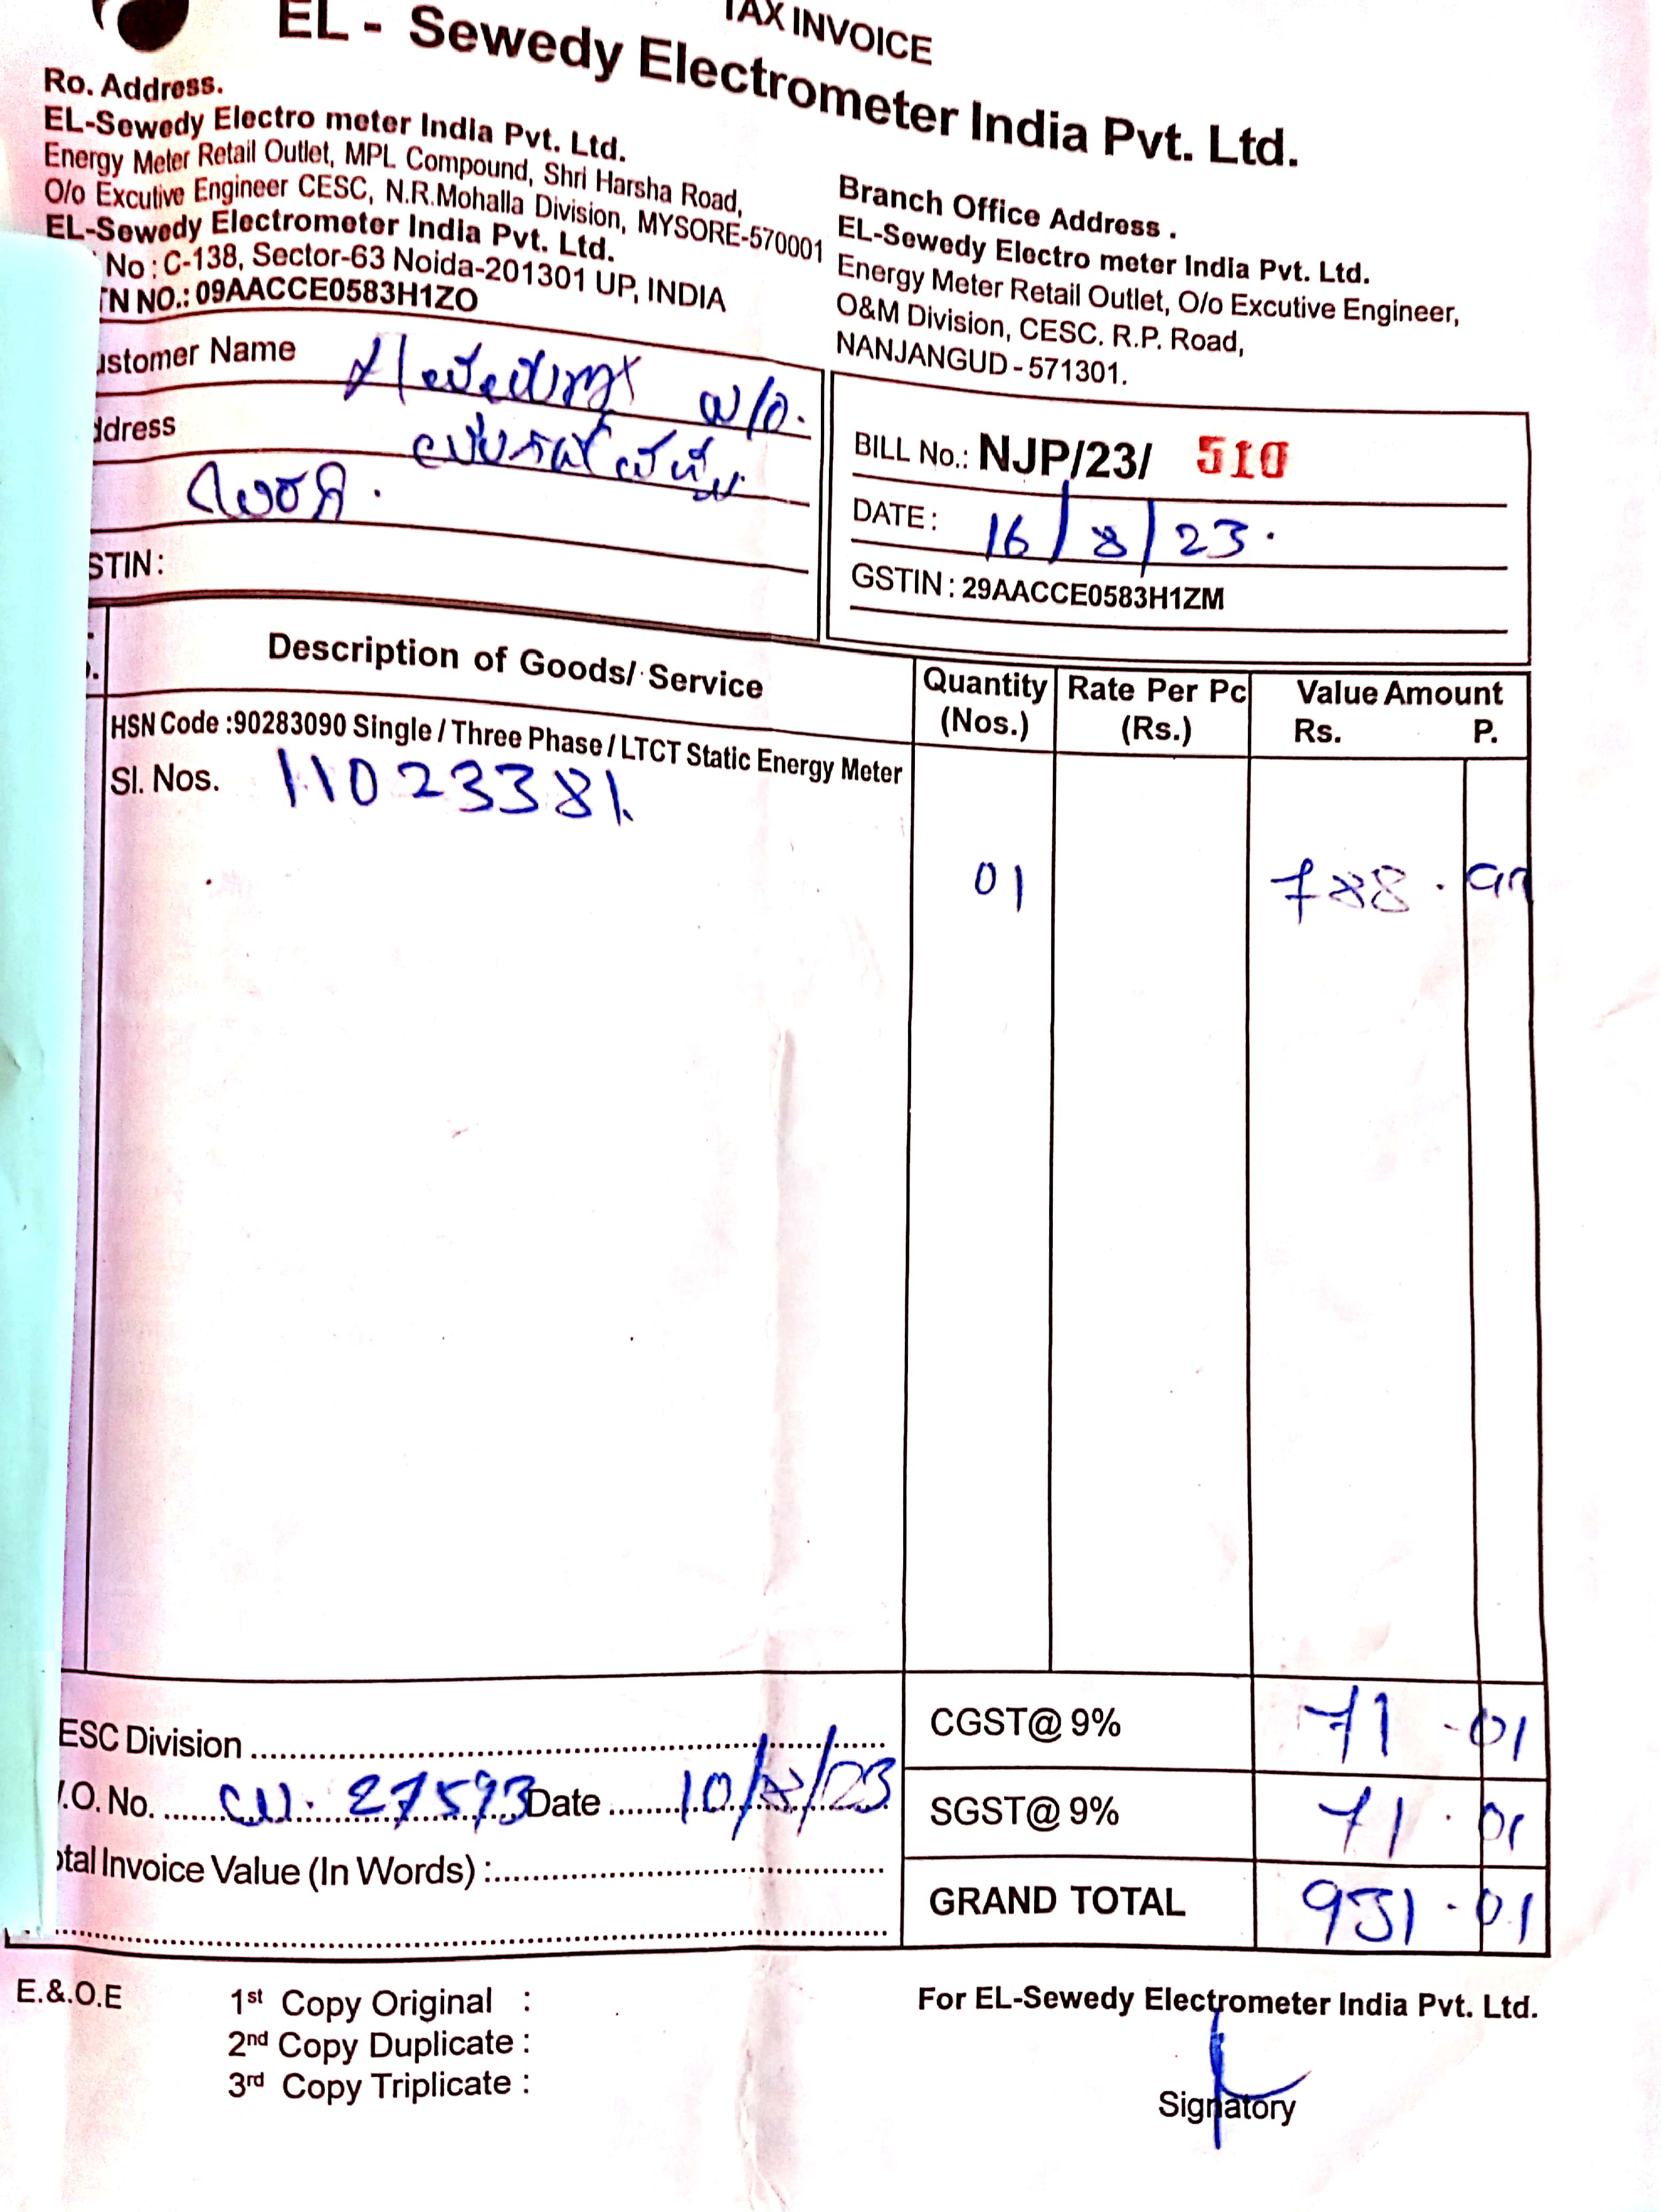 TAX INVOICE
EL - Sewedy Electrometer India Pvt. Ltd.
Ro. Address.
EL-Sewedy Electro meter India Pvt. Ltd.
Energy Meter Retail Outlet, MPL Compound, Shri Harsha Road,
O/o Excutive Engineer CESC, N.R.Mohalla Division, MYSORE-570001
EL-Sewedy Electrometer India Pvt. Ltd.
No : C-138, Sector-63 Noida-201301 UP, INDIA
TN NO.: 09AACCE0583H1ZO
Branch Office Address .
EL-Sewedy Electro meter India Pvt. Ltd.
Energy Meter Retail Outlet, O/o Excutive Engineer,
O&M Division, CESC. R.P. Road,
NANJANGUD - 571301.
ustomer Name w/o.
ddress
STIN :
BILL No.: NJP/23/ 510
DATE : 16/8/23.
GSTIN : 29AACCE0583H1ZM
Description of Goods/ Service
Quantity (Nos.)
Rate Per Pc (Rs.)
Value Amount
Rs. P.
HSN Code :90283090 Single / Three Phase / LTCT Static Energy Meter
Sl. Nos. 11023381
01 788.
CGST@ 9% 71 - 01
SGST@ 9% 71 . 01
GRAND TOTAL 931 - 01
ESC Division
.O. No. 27593 Date 10/8/23
otal Invoice Value (In Words) :
E.&.O.E
1st Copy Original :
2nd Copy Duplicate :
3rd Copy Triplicate :
For EL-Sewedy Electrometer India Pvt. Ltd.
Signatory